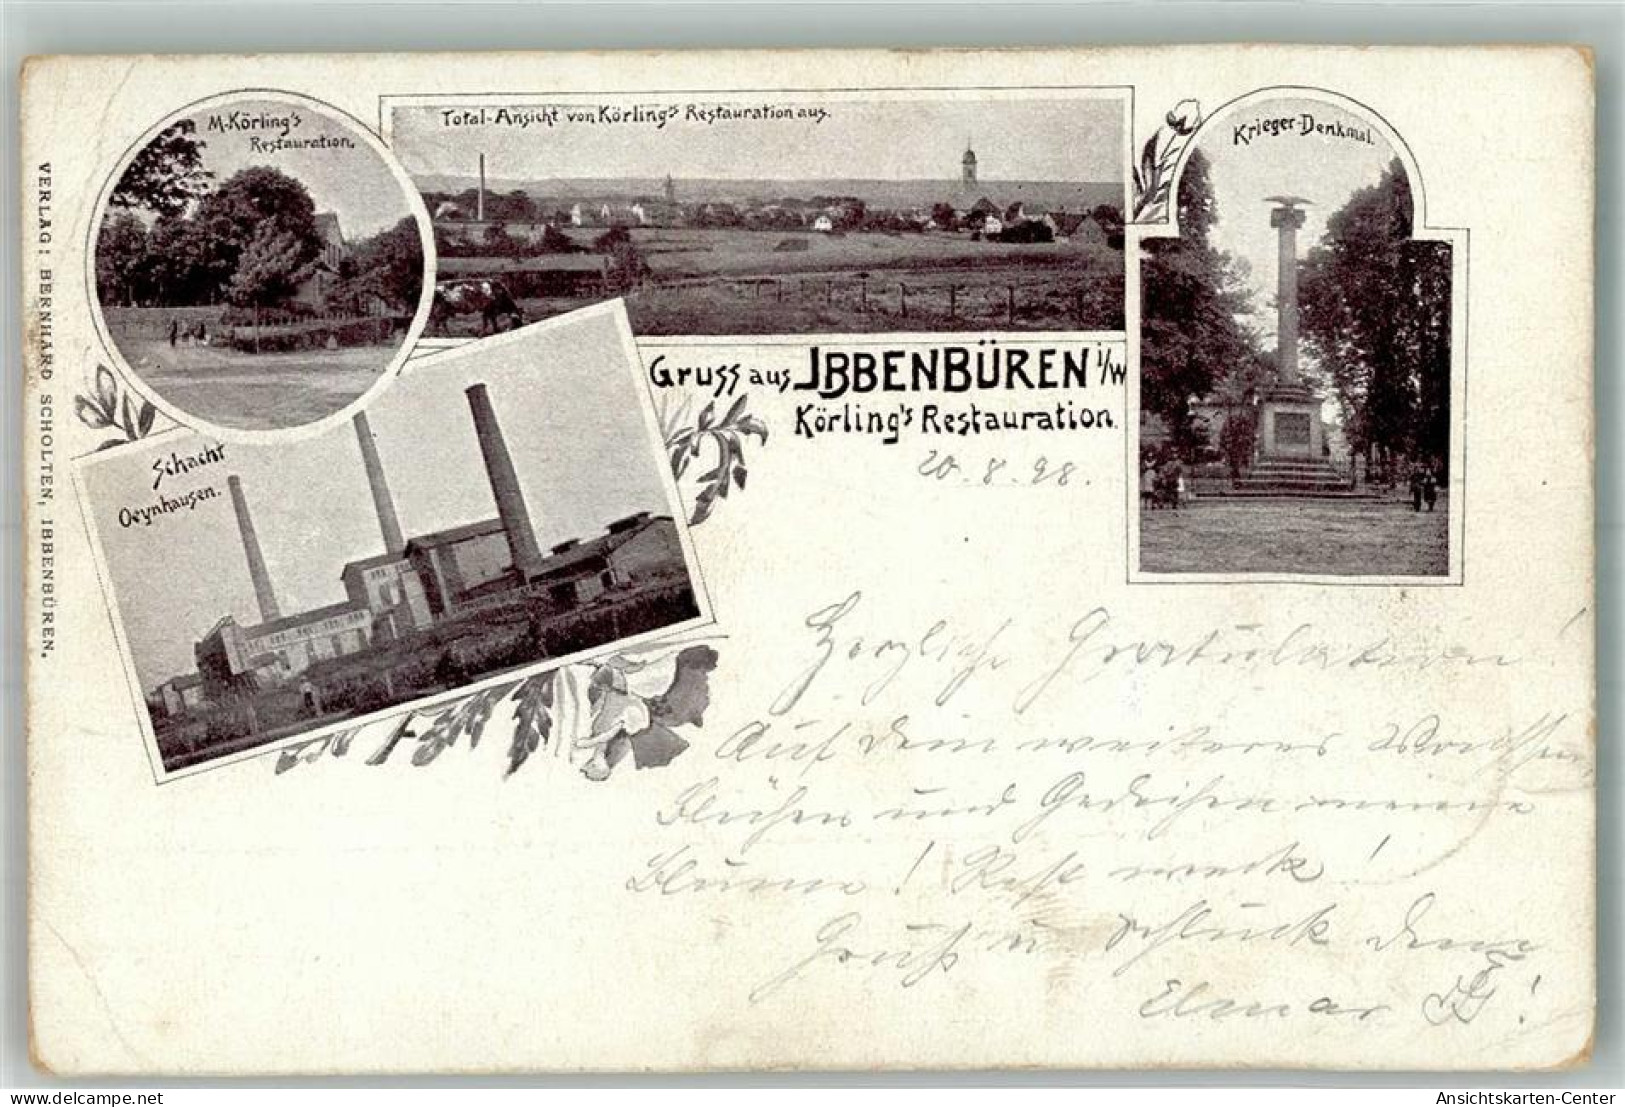 M. Körling's
Restauration.
Total-Ansicht von Körling's Restauration aus.
Krieger-Denkmal.
VERLAG: BERNHARD SCHOLTEN, IBBENBÜREN.
Gruss aus IBBENBÜREN i/W
Körling's Restauration.
Schacht
Oeynhausen.
20.8.98.
Herzliche Gratulation!
Auf dein weiteres Wachsen,
Blühen und und Gedeihen meine
Blume! Rest weck!
Gruß u Schluck Dein
Elmar
delcampe.net
Ansichtskarten-Center